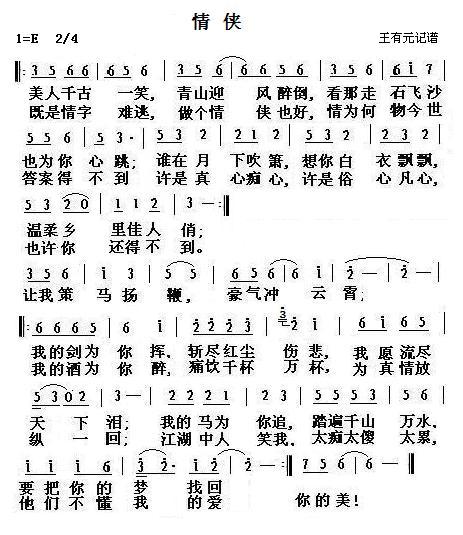 情 侠
1=E 2/4 王有元记谱
‖: 3 5 6 6 | 6 5 6 | 3 5 6 5 | 6 6 5 | 3 5 6 6 | 6 i 7 |
美人千古 一笑，青山迎 风醉倒，看那走 石飞沙
既是情字 难逃，做个情 侠也好，情为何 物今世
5 5 6 | 5 3 | 2 3 2 3 | 5 3 2 | 2 1 2 | 5 3 2 |
也为你 心跳；谁在月 下吹箫，想你白 衣飘飘，
答案得 不到 许是真 心痴心，许是俗 心凡心，
5 3 2 0 | 1 1 2 | 3 — :‖
温柔乡 里佳人 俏；
也许你 还得不 到。
3 5 6 | i i | 5 5 | 6 5 6 | 6 i | 2 — | 2 — |
让我策 马扬 鞭，豪气冲 云霄；
‖: 6 6 6 5 | 6 i | 2 2 2 3 | 2 i | 6 i 6 5 |
我的剑为 你挥，斩尽红尘 伤悲，我愿流尽
我的酒为 你醉，痛饮千杯 万杯，为真情放
5 3 0 2 | 3 — | 2 2 2 1 | 2 3 | 1 2 3 5 | 6 i 2 |
天 下泪；我的马为 你追，踏遍千山 万水。
纵 一回；江湖中人 笑我。太痴太傻 太累，
i i i 6 | 2 3 | 3 2 | 2 — :‖ 7 5 6 | 6 — ‖
要把你的 梦找回
他们不懂 我的爱 你的美！